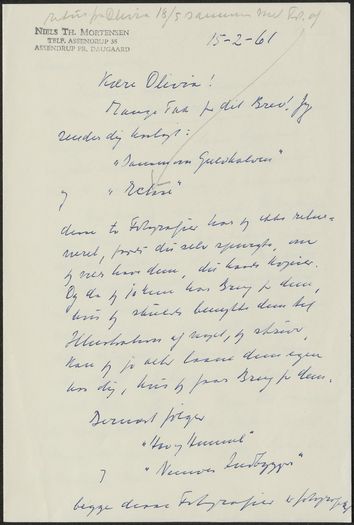 retur fra Olivia 18/5 sammen med
NIELS TH. MORTENSEN
TELF. ASSENDRUP 35
ASSENDRUP PR. DAUGAARD
15-2-61
Kære Olivia!
Mange Tak for dit Brev! Jeg
sender dig hoslagt:
"Guldhalsen"
og "
disse to Fotografier har jeg ikke retur-
neret, fordi du selv spurgte, om
jeg ville have dem, du havde Kopier.
Og da jeg jo kun har Brug for dem,
hvis jeg skulde benytte dem til
Illustration af noget, jeg skriver,
kan jeg jo altid laane dem igen
hos dig, hvis jeg faar Brug for dem.
Dernæst følger
" Himmel"
og "
begge disse Fotografier